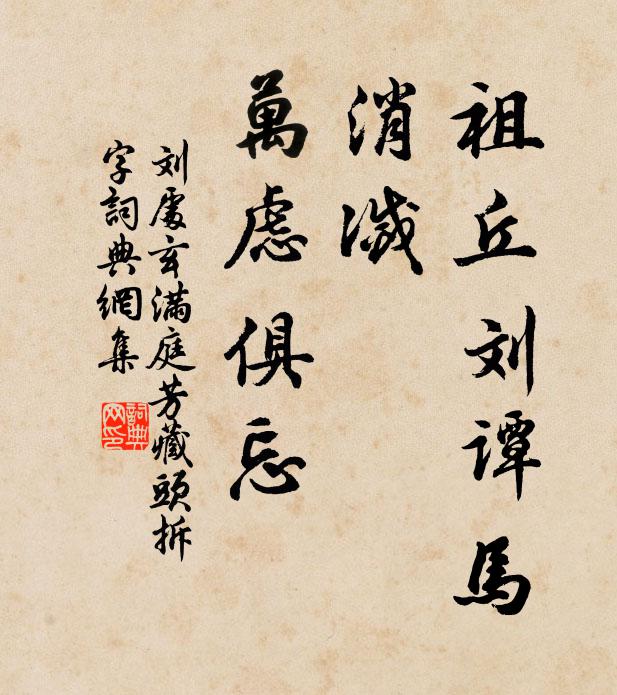 祖丘刘谭馬
消滅
萬慮俱忘
刘處玄满庭芳藏頭拆
字詞典網集
詞典网印